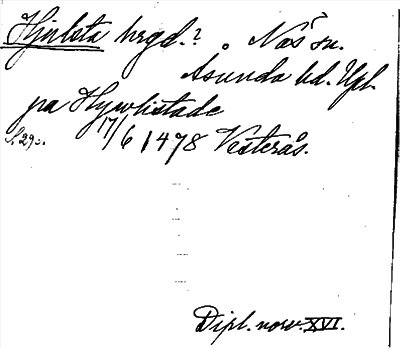 Hjulsta hrgd.? . Näs sn.
Åsunda hd. Upl.
pa Hywlistade
S. 290. 17/6 1478 Vesterås.
Dipl. norv. XVI.